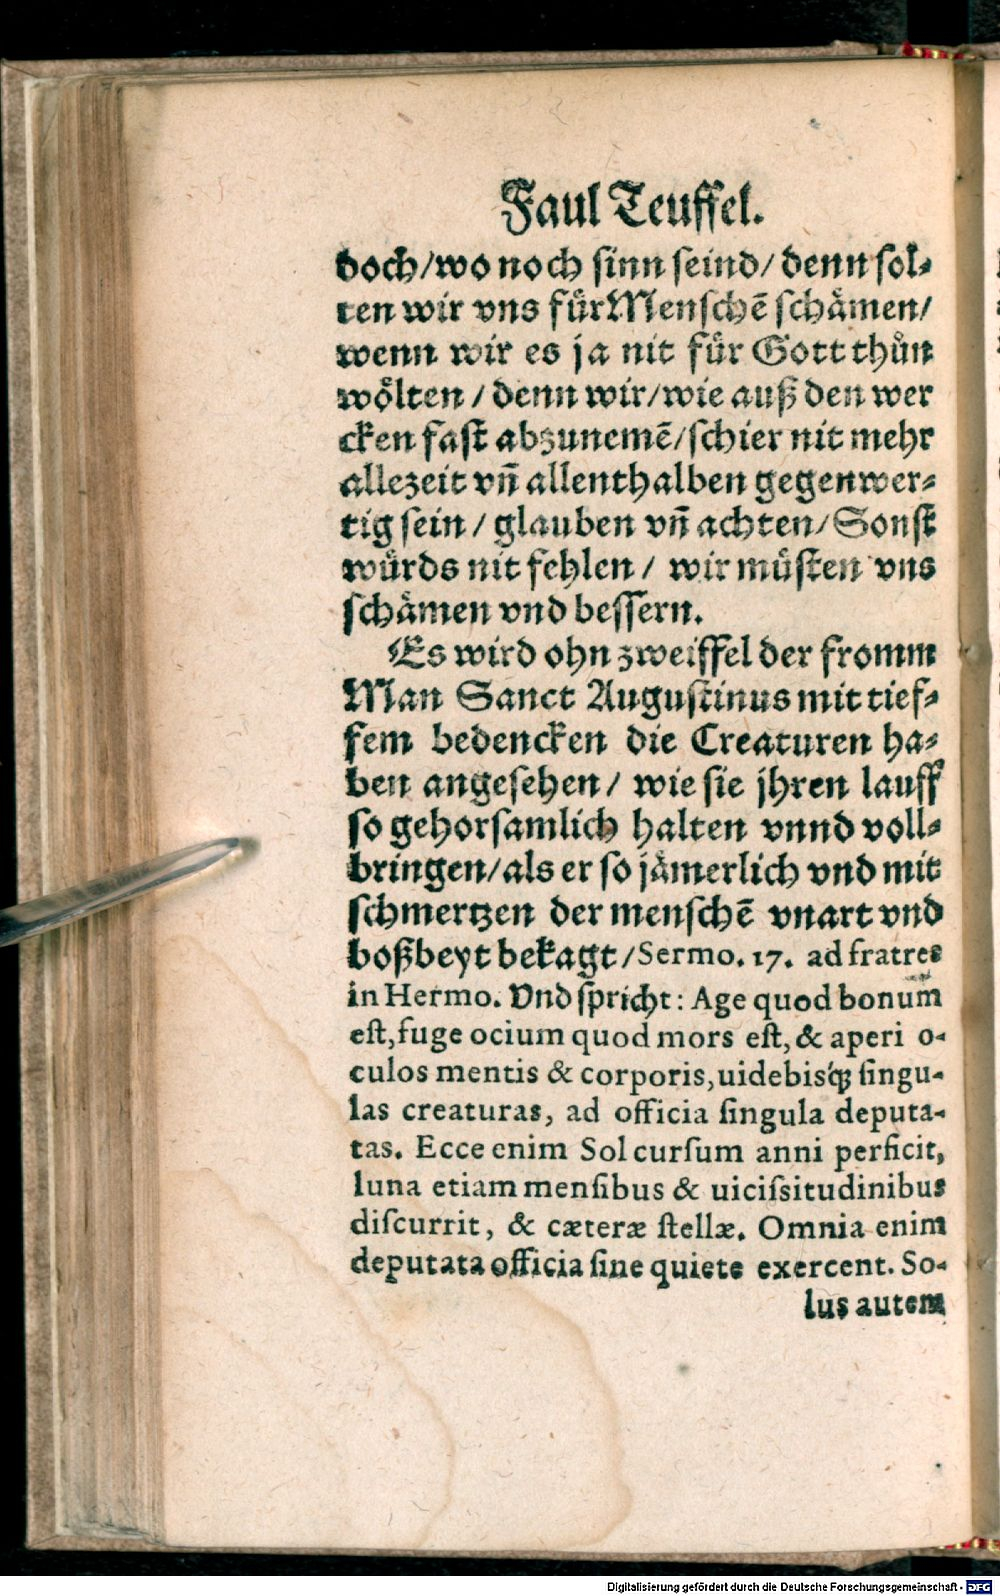 Faul Teuffel.
doch/wo noch sinn seind/ denn sol⸗
ten wir vns fuͤr Menschẽ schaͤmen/
wenn wir es ja nit fuͤr Gott thuͤn
woͤlten / denn wir/wie auß den wer
cken fast abzunemẽ/schier nit mehr
allezeit vñ allenthalben gegenwer⸗
tig sein/ glauben vñ achten/Sonst
wuͤrds nit fehlen/ wir muͤsten vns
schaͤmen vnd bessern.
Es wird ohn zweiffel der fromm
Man Sanct Augustinus mit tief⸗
fem bedencken die Creaturen ha⸗
ben angesehen/ wie sie jhren lauff
so gehorsamlich halten vnnd voll⸗
bringen/als er so jaͤmerlich vnd mit
schmertzen der menschẽ vnart vnd
boßbeyt bekagt/Sermo. 17. ad fratres
in Hermo. Vnd spricht: Age quod bonum
est, fuge ocium quod mors est, & aperi o-
culos mentis & corporis, uidebisq́; singu-
las creaturas, ad officia singula deputa-
tas. Ecce enim Sol cursum anni perficit,
luna etiam mensibus & uicissitudinibus
discurrit, & cæteræ stellæ. Omnia enim
deputata officia sine quiete exercent. So-
lus autem
Digitalisierung gefördert durch die Deutsche Forschungsgemeinschaft - DFG